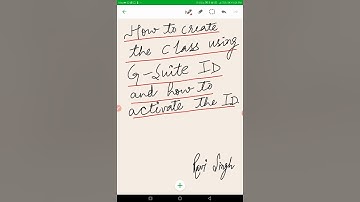 How to create
the class using
G-Suite ID
and how to
activate the ID
Ravi Singh